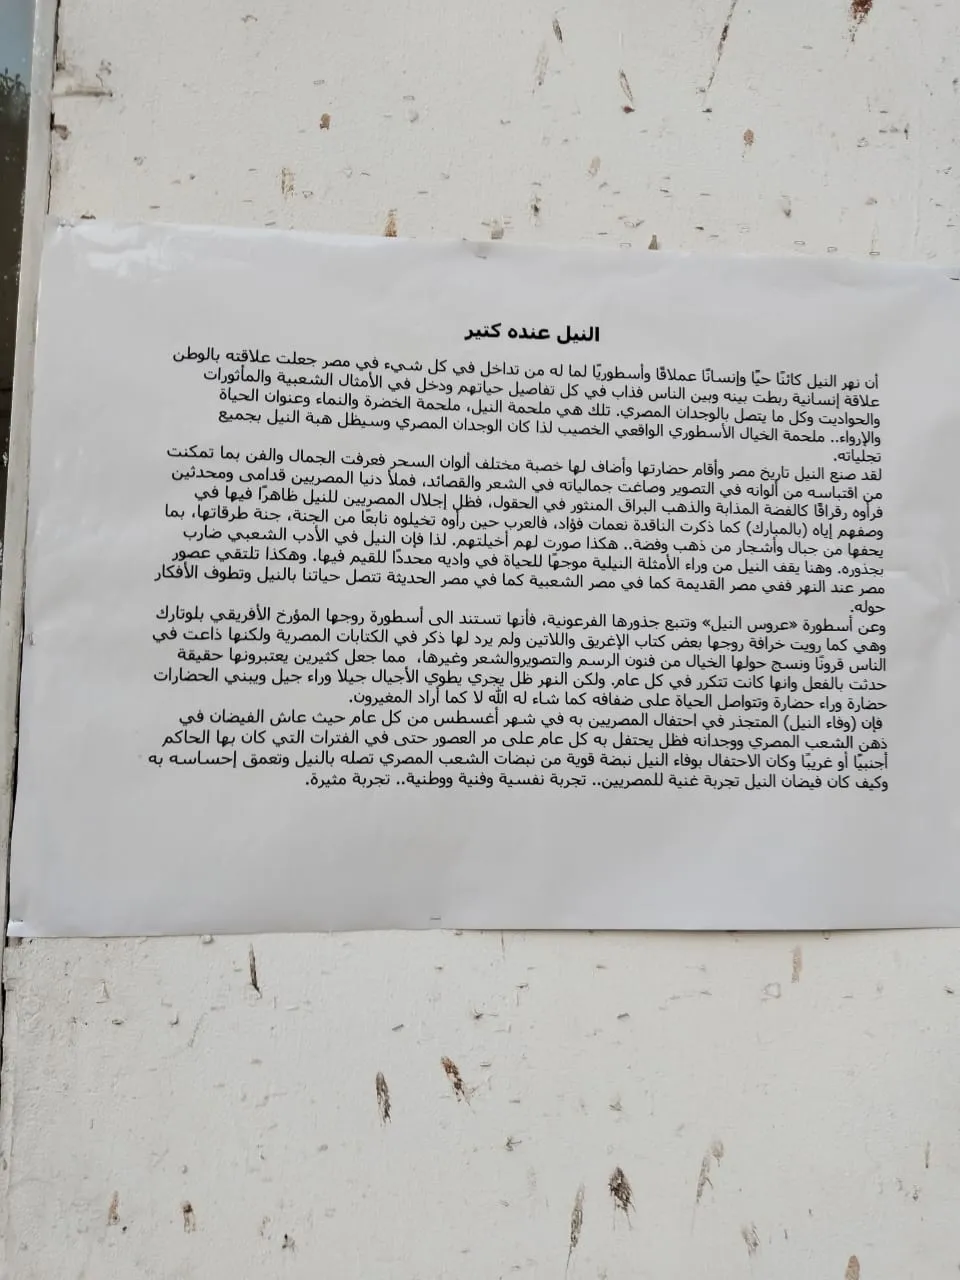 النيل عنده كتير
أن نهر النيل كائنًا حيًا وإنسانًا عملاقًا وأسطوريًا لما له من تداخل في كل شيء في مصر جعلت علاقته بالوطن
علاقة إنسانية ربطت بينه وبين الناس فذاب في كل تفاصيل حياتهم ودخل في الأمثال الشعبية والمأثورات
والحواديت وكل ما يتصل بالوجدان المصري. تلك هي ملحمة النيل، ملحمة الخضرة والنماء وعنوان الحياة
والإرواء.. ملحمة الخيال الأسطوري الواقعي الخصيب لذا كان الوجدان المصري وسيظل هبة النيل بجميع
تجلياته.
لقد صنع النيل تاريخ مصر وأقام حضارتها وأضاف لها خصبة مختلف ألوان السحر فعرفت الجمال والفن بما تمكنت
من اقتباسه من ألوانه في التصوير وصاغت جمالياته في الشعر والقصائد، فملأ دنيا المصريين قدامى ومحدثين
فرأوه رقراقًا كالفضة المذابة والذهب البراق المنثور في الحقول، فظل إجلال المصريين للنيل ظاهرًا فيها في
وصفهم إياه (بالمبارك) كما ذكرت الناقدة نعمات فؤاد، فالعرب حين رأوه تخيلوه نابعًا من الجنة، جنة طرقاتها، بما
يحفها من جبال وأشجار من ذهب وفضة.. هكذا صورت لهم أخيلتهم. لذا فإن النيل في الأدب الشعبي ضارب
بجذوره. وهنا يقف النيل من وراء الأمثلة النيلية موجهًا للحياة في واديه محددًا للقيم فيها. وهكذا تلتقي عصور
مصر عند النهر ففي مصر القديمة كما في مصر الشعبية كما في مصر الحديثة تتصل حياتنا بالنيل وتطوف الأفكار
حوله.
وعن أسطورة «عروس النيل» وتتبع جذورها الفرعونية، فأنها تستند الى أسطورة روجها المؤرخ الأفريقي بلوتارك
وهي كما رويت خرافة روجها بعض كتاب الإغريق واللاتين ولم يرد لها ذكر في الكتابات المصرية ولكنها ذاعت في
الناس قرونًا ونسج حولها الخيال من فنون الرسم والتصويروالشعر وغيرها، مما جعل كثيرين يعتبرونها حقيقة
حدثت بالفعل وانها كانت تتكرر في كل عام. ولكن النهر ظل يجري يطوي الأجيال جيلا وراء جيل ويبني الحضارات
حضارة وراء حضارة وتتواصل الحياة على ضفافه كما شاء له الله لا كما أراد المغيرون.
فإن (وفاء النيل) المتجذر في احتفال المصريين به في شهر أغسطس من كل عام حيث عاش الفيضان في
ذهن الشعب المصري ووجدانه فظل يحتفل به كل عام على مر العصور حتى في الفترات التي كان بها الحاكم
أجنبيًا أو غريبًا وكان الاحتفال بوفاء النيل نبضة قوية من نبضات الشعب المصري تصله بالنيل وتعمق إحساسه به
وكيف كان فيضان النيل تجربة غنية للمصريين.. تجربة نفسية وفنية ووطنية.. تجربة مثيرة.